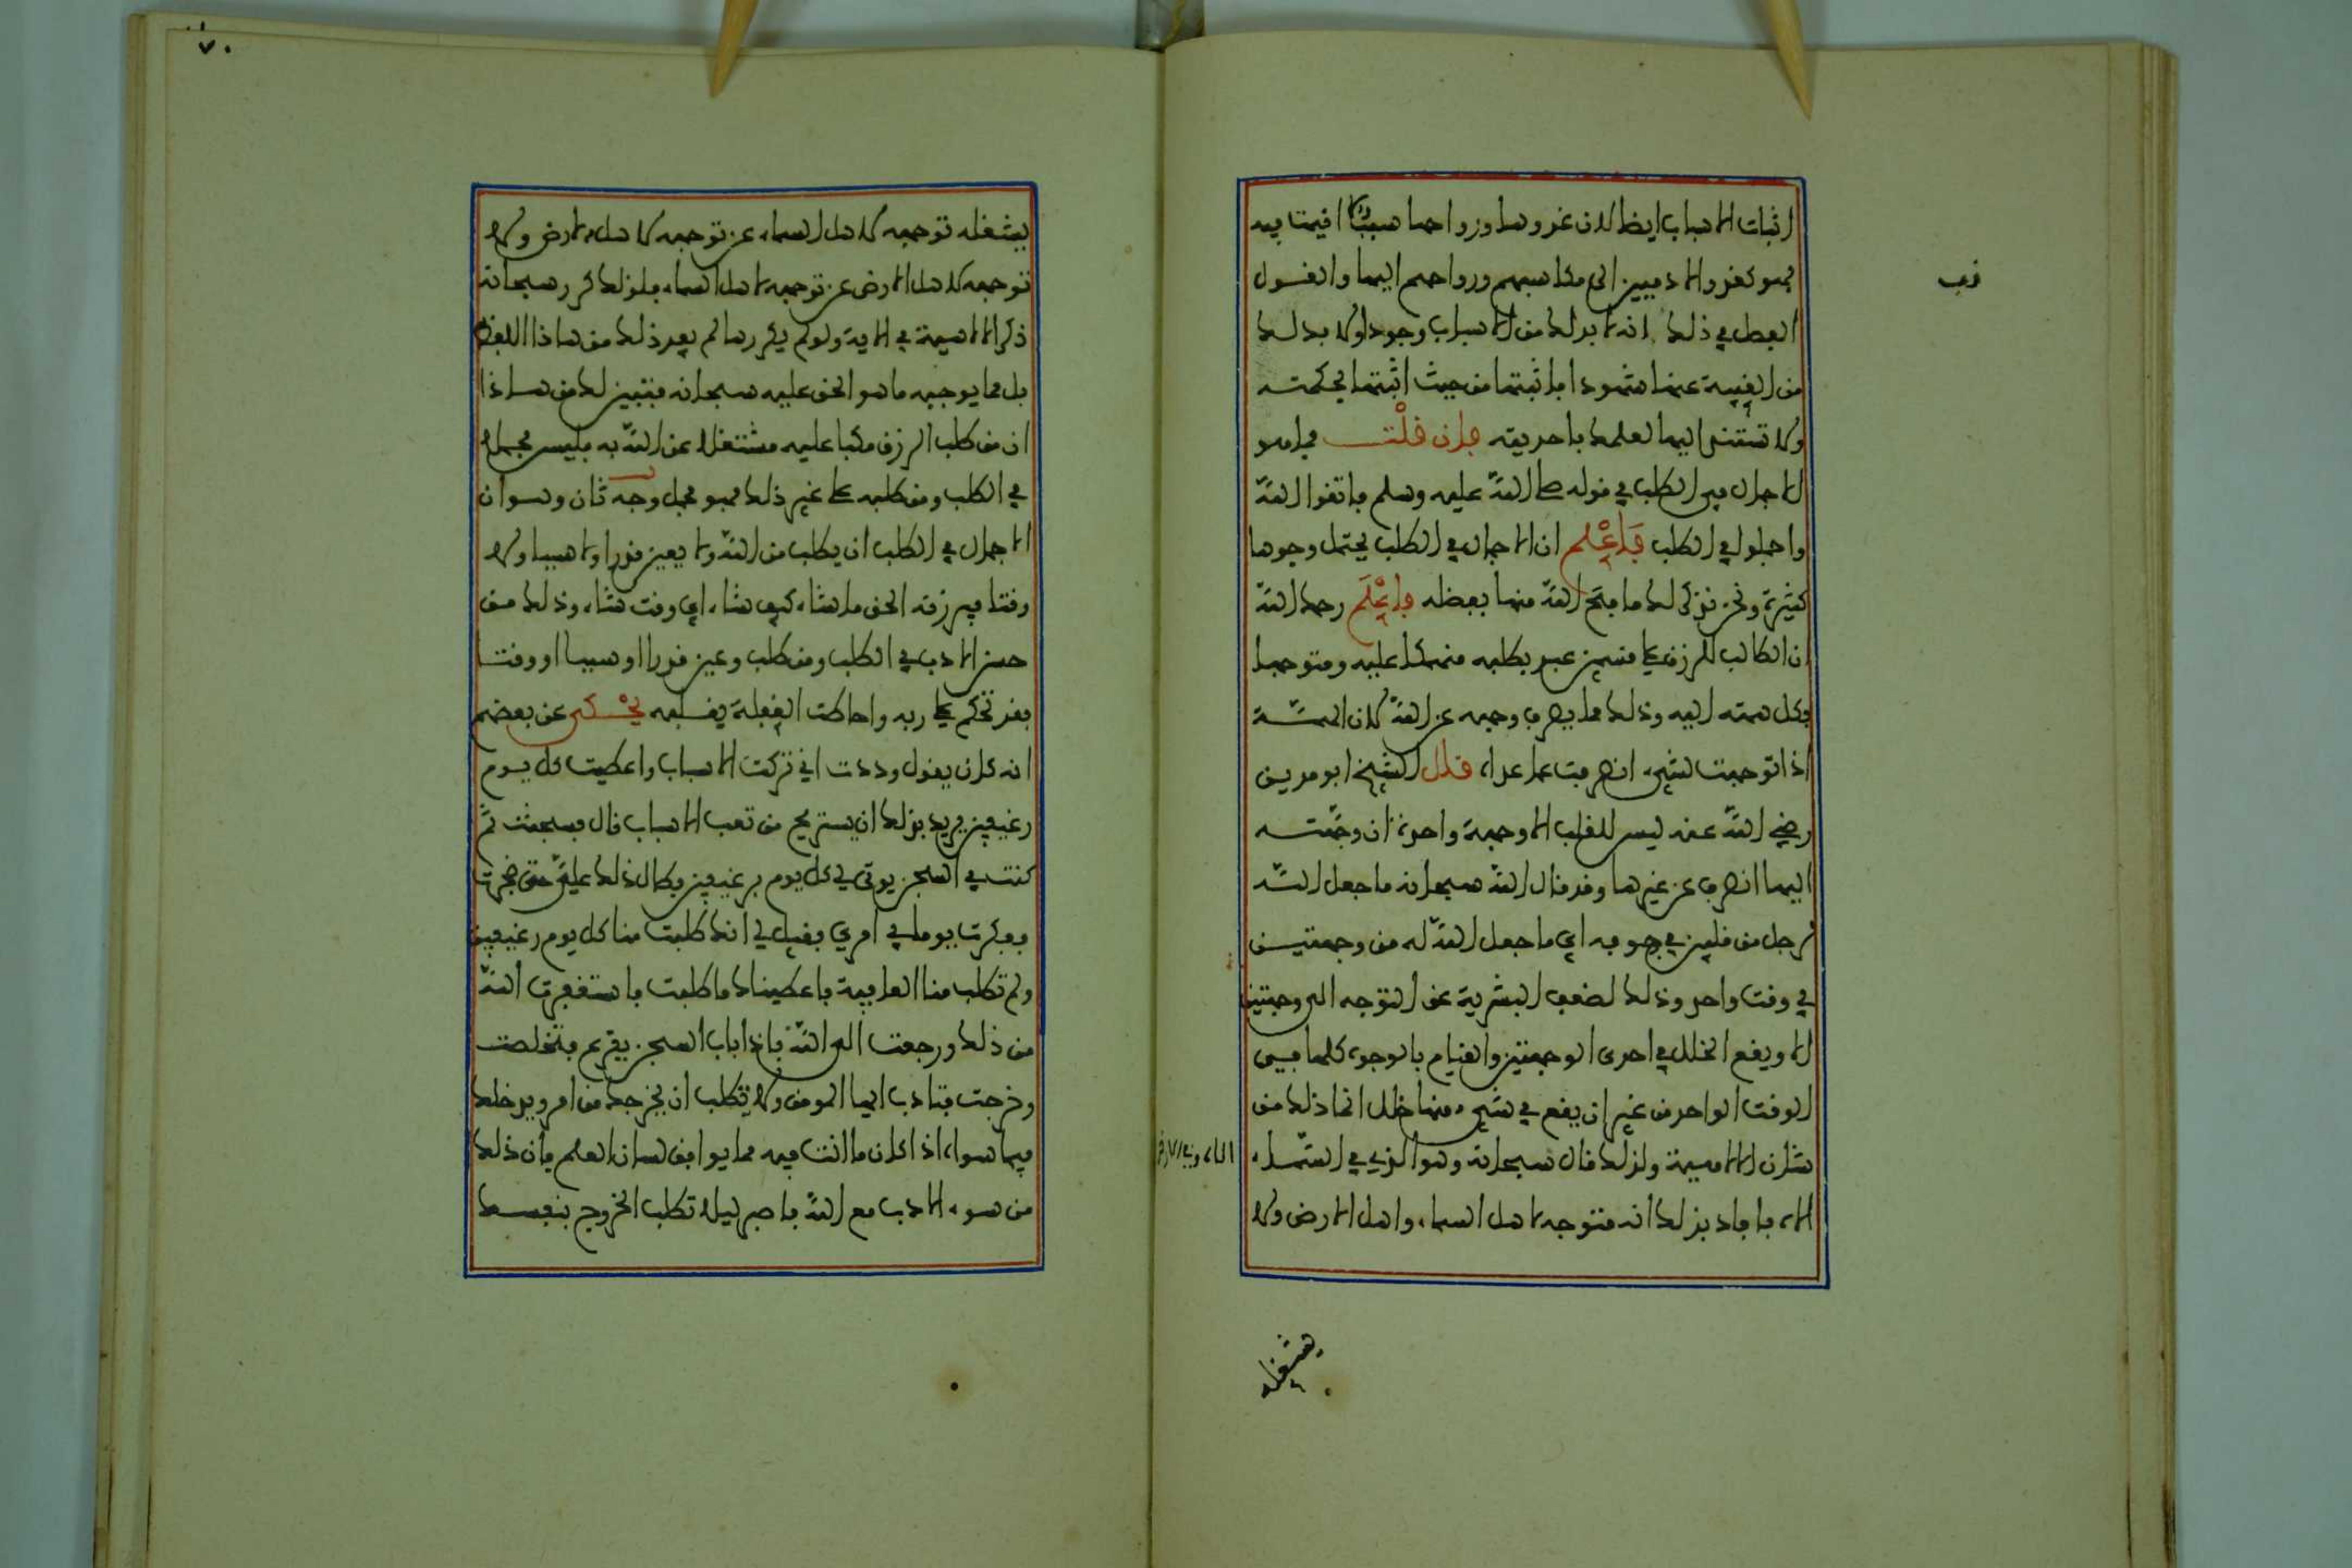 اثبات الاسباب ايضا لان غدوها ورواحها سببا اقيمت فيه
فهو كغدو الادميين الى مكاسبهم ورواحهم اليها والقول
الفصل في ذلك انه لا بد لك من الاسباب وجودا ولا بد لك
من الغيبة عنها شهودا فاثبتها من حيث اثبتها بحكمته
ولا تستند اليها لعلمك باحديته فان قلت فما هو
الاجمال في الطلب في قوله صلى الله عليه وسلم فاتقوا الله
واجملوا في الطلب فاعلم ان الاجمال في الطلب يحتمل وجوها
كثيرة ونحن نذكر لك ما فتح الله منها بفضله فاعلم رحمك الله
ان الطالب للرزق على قسمين عبد يطلبه منهمكا عليه ومتوجها
بكل همته اليه وذلك مما يصرف وجهه عن الله لان الهمة
اذا توجهت لشيء انصرفت عما عداه قال الشيخ ابو مدين
رضي الله عنه ليس للقلب الا وجهة واحدة ان وجهته
اليها انصرف عن غيرها وقد قال الله سبحانه ما جعل الله
لرجل من قلبين في جوفه اي ما جعل الله له من وجهتين
في وقت واحد وذلك لضعف البشرية عن التوجه الى وجهتين
الا ويقع الخلل في احدى الوجهتين والقيام بالوجوه كلها في
الوقت الواحد من غير ان يقع في شيء منها خلل انما ذلك من
شان الالاهية ولذلك قال سبحانه وهو الذي في السماء
الاه فافاد بذلك انه متوجه لاهل السماء واهل الارض ولا
يشغله
الاه وفي الارض
قف
٧٠
يشغله توجهه لاهل السماء عن توجهه لاهل الارض ولا
توجهه لاهل الارض عن توجهه لاهل السماء فلذلك كرر سبحانه
ذكر الالاهية في الاية ولو لم يكررها لم يفد ذلك من هاذا اللفظ
بل مما يوجبه ما هو الحق عليه سبحانه فتبين لك من هاذا
ان من طلب الرزق مكبا عليه مشتغلا عن الله به فليس مجملا
في الطلب ومن طلبه على غير ذلك فهو مجمل وجه ثان وهو ان
الاجمال في الطلب ان يطلب من الله ولا يعين قدرا ولا سببا ولا
وقتا فيرزقه الحق ما شاء كيف شاء اي وقت شاء وذلك من
حسن الادب في الطلب ومن طلب وعين قدرا او سببا او وقتا
فقد تحكم على ربه واحاطت الغفلة بقلبه يحكى عن بعضهم
انه كان يقول وددت اني تركت الاسباب واعطيت كل يوم
رغيفين يريد بذلك ان يستريح من تعب الاسباب قال فسجنت ثم
كنت في السجن يوتى لي كل يوم برغيفين فطال ذلك علي حتى ضجرت
ففكرت يوما في امري فقيل لي انك طلبت منا كل يوم رغيفين
ولم تطلب منا العافية فاعطيناك ما طلبت فاستغفرت الله
من ذلك ورجعت الى الله فاذا باب السجن يقرع فتخلصت
وخرجت فتادب ايها المومن ولا تطلب ان يخرجك من امر ويدخلك
فيما سواه اذا كان ما انت فيه مما يوافق لسان العلم فان ذلك
من سوء الادب مع الله فاصبر ليلا تطلب الخروج بنفسك